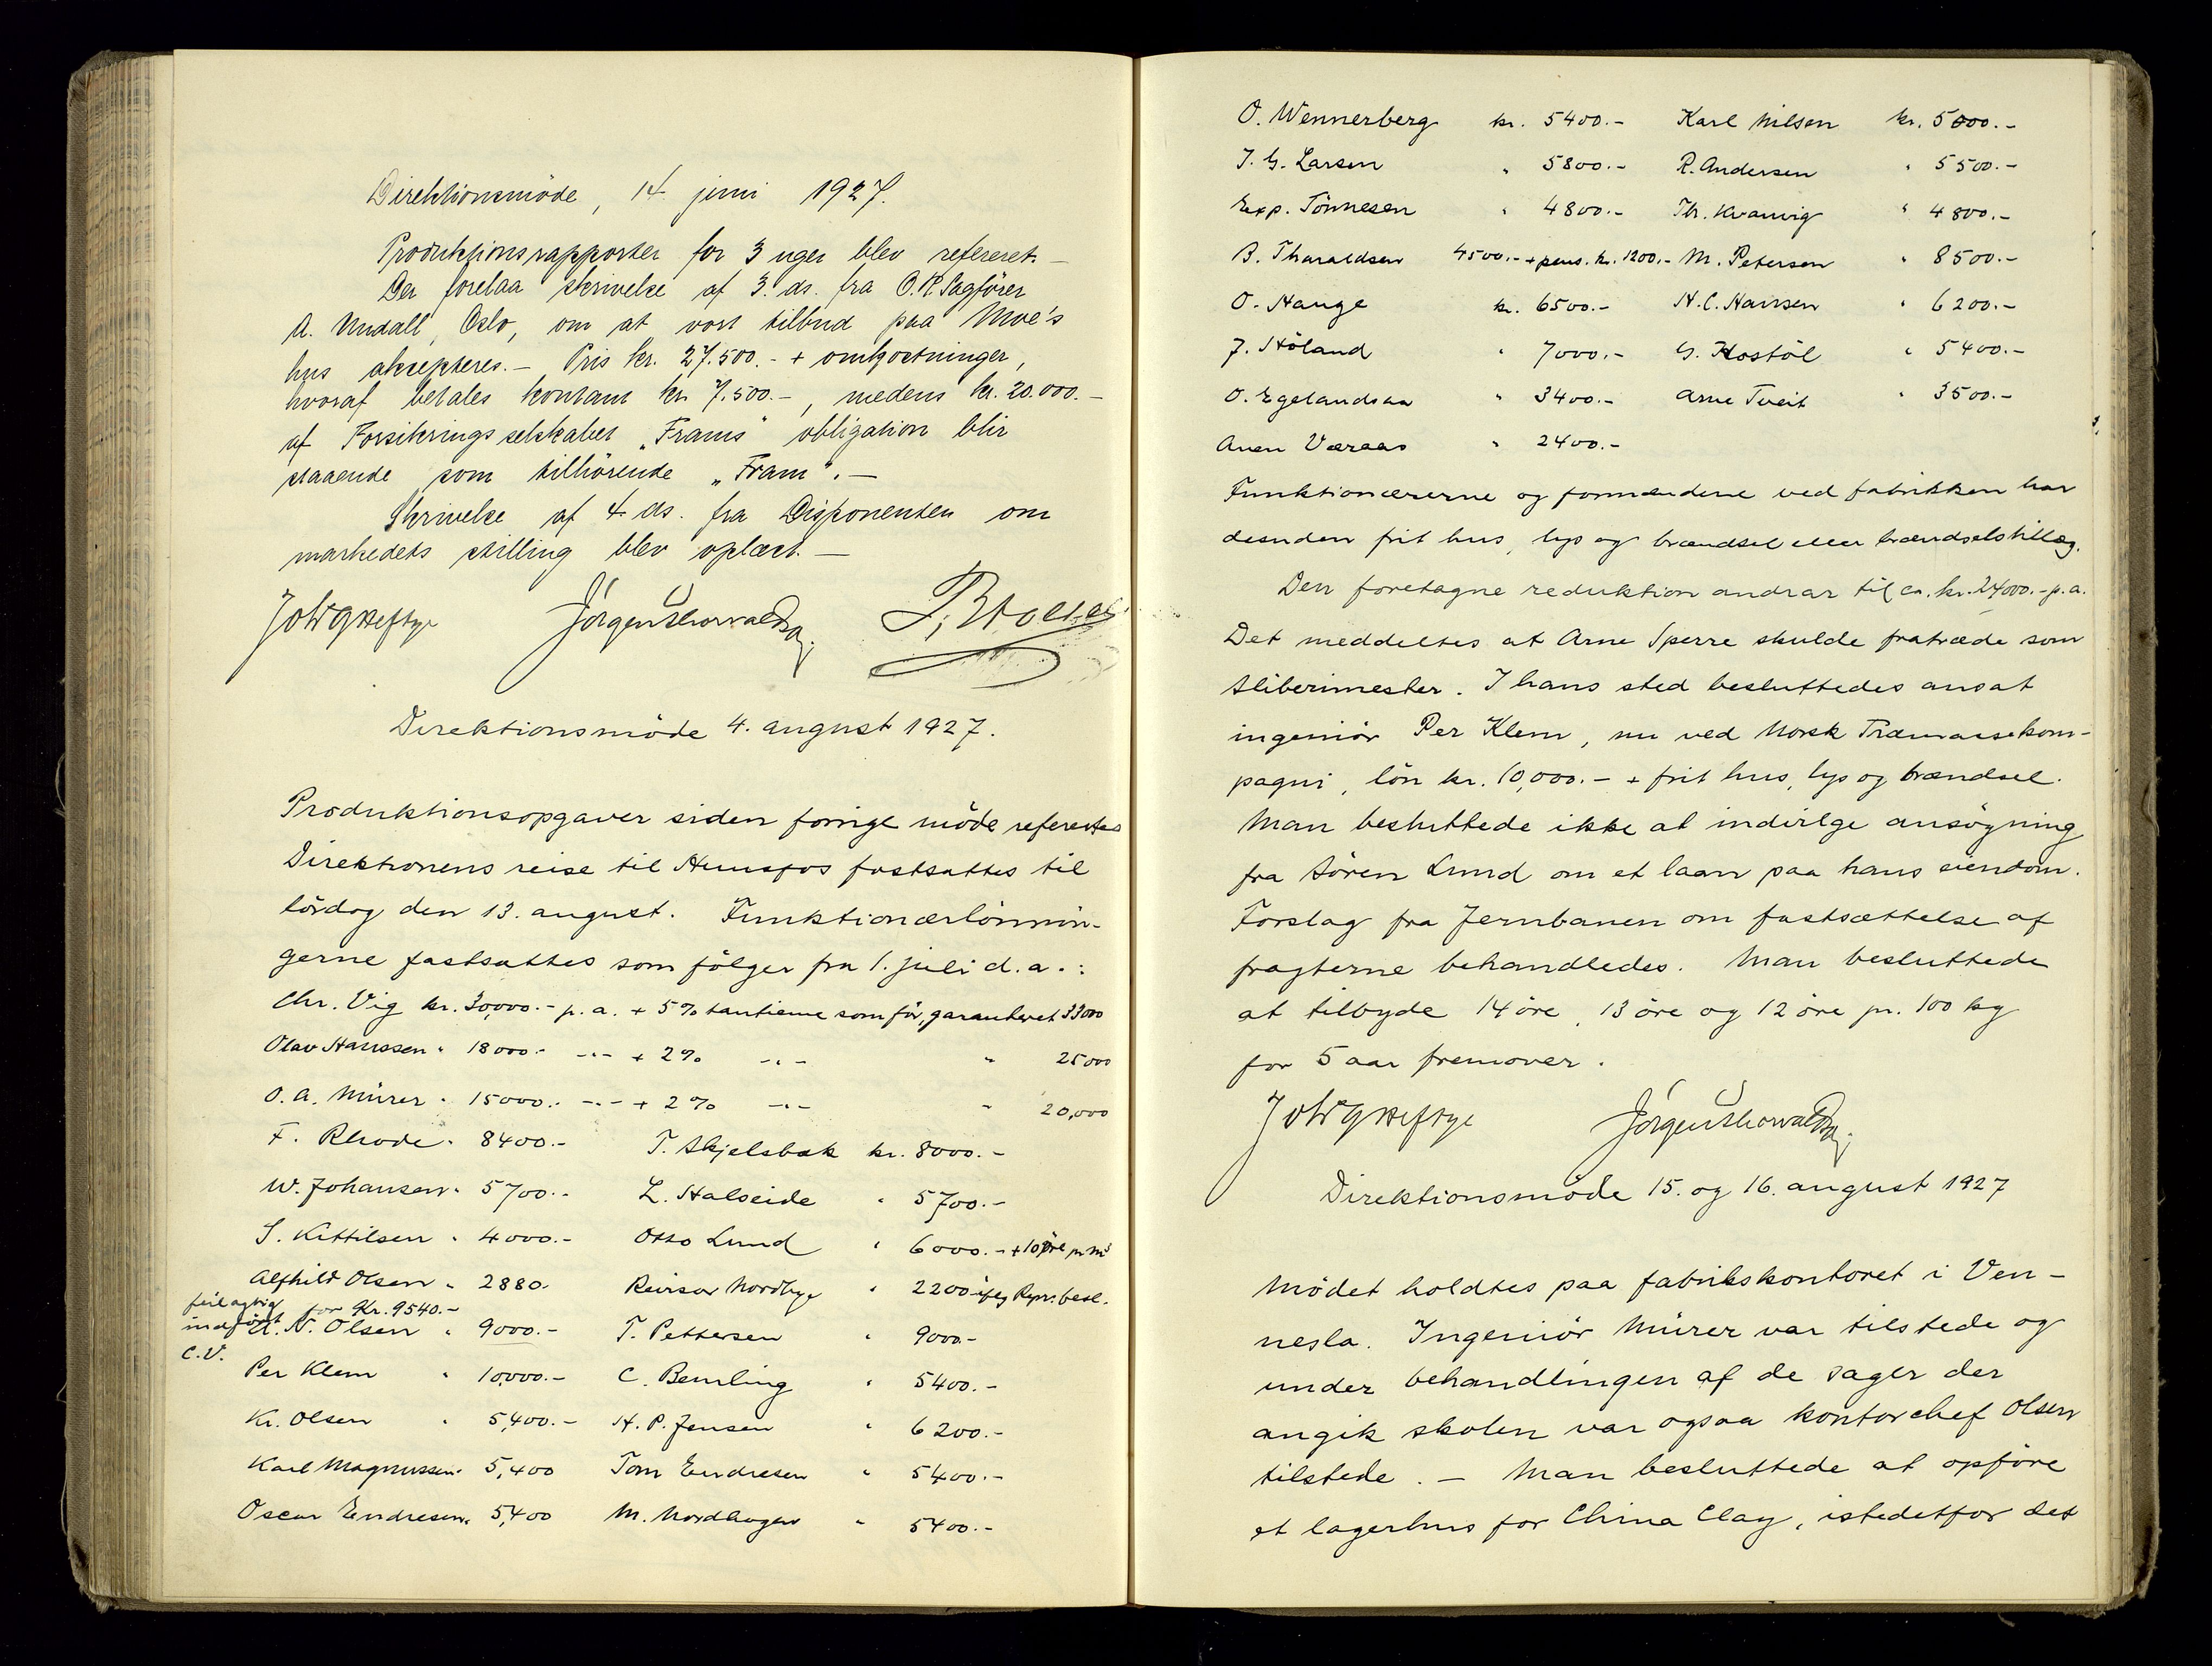 Direktionsmöde, 14 juni 1927.
Produktionsrapporter for 3 uger blev refereret. —
Der forelaa skrivelse af 3. ds. fra O.R.Sagförer
A. Undall, Oslo, om at vort tilbud paa Moe's
hus aksepteres. — Pris kr. 27.500.- + omkostninger,
hvoraf betales kontant kr. 7.500.-, medens kr. 20.000.-
af Forsikringsselskabet „Frams" obligation blir
staaende som tilhörende „Fram". —
Skrivelse af 4 ds. fra Disponenten om
markedets stilling blev oplæst. —
Joh G Heftye Jörgen Thorvaldsen
Direktionsmöde 4. august 1927.
Produktionsopgaver siden forrige möde refereertes
Direktionens reise til Hunsfos fastsattes til
lördag den 13. august. Funktionærlönnin-
gerne fastsattes som fölger fra 1. juli d.a.:
Chr. Vig kr. 30,000.- p.a. + 5% tantieme som för, garanteret 33000
Olav Hanssen " 18000.- -"- + 2% -"- " 25000
O. A. Mürer " 15000.- -"- + 2% -"- " 20,000
F. Rhode " 8400.- T. Skjelsbæk kr. 8000.-
W. Johansen " 5700.- L. Halseide " 5700.-
S. Kittilsen " 4000.- Otto Lund " 6000.- + 10 öre pr m³
Alfhild Olsen " 2880. Revisor Nordbye " 2200 iflg Repr. besl.
feilagtig indfört for Kr. 9540.- C.V.
A. N. Olsen " 9000.- T. Pettersen " 9000.-
Per Klem " 10,000.- C. Bemling " 5400.-
Kr. Olsen " 5,400.- H. P. Jensen " 6200.-
Karl Magnussen " 5,400 Tom Endresen " 5400.-
Oscar Endresen " 5,400 M. Nordhagen " 5400.-
O. Wennerberg kr. 5400.- Karl Nilsen kr. 5000.-
J. G. Larsen " 5800.- R. Andersen " 5500.-
Exp. Tönnesen " 4800.- Th. Kvarvig " 4800.-
B. Tharaldsen 4500.- + pens. kr. 1200.- M. Petersen " 8500.-
O. Hauge kr. 6500.- H. C. Hansen " 6200.-
J. Höland " 7000.- G. Kostöl " 5400.-
O. Egelandsaa " 3400.- Arne Tveit " 3500.-
Aven Væraas " 2400.-
Funktionærerne og formændene ved fabrikken har
desuden frit hus, lys og brændsel eller brændselstillæg.
Den foretagne reduktion andrar til ca. kr. 24000.- p.a.
Det meddeltes at Arne Sperre skulde fratræde som
sliberimester. I hans sted besluttedes ansat
ingeniör Per Klem, nu ved Norsk Træmassekom-
pagni, lön kr. 10,000.- + frit hus, lys og brændsel.
Man besluttede ikke at indvilge ansögning
fra Sören Lund om et laan paa hans eiendom.
Forslag fra Jernbanen om fastsættelse af
fragterne behandledes. Man besluttede
at tilbyde 14 öre, 13 öre og 12 öre pr. 100 kg
for 5 aar fremover.
Joh G Heftye Jörgen Thorvaldsen
Direktionsmöde 15. og 16. august 1927
Mödet holdtes paa fabrikskontoret i Ven-
nesla. Ingeniör Mürer var tilstede og
under behandlingen af de sager der
angik skolen var ogsaa kontorchef Olsen
tilstede. — Man besluttede at opföre
et lagerhus for China Clay, istedetfor det